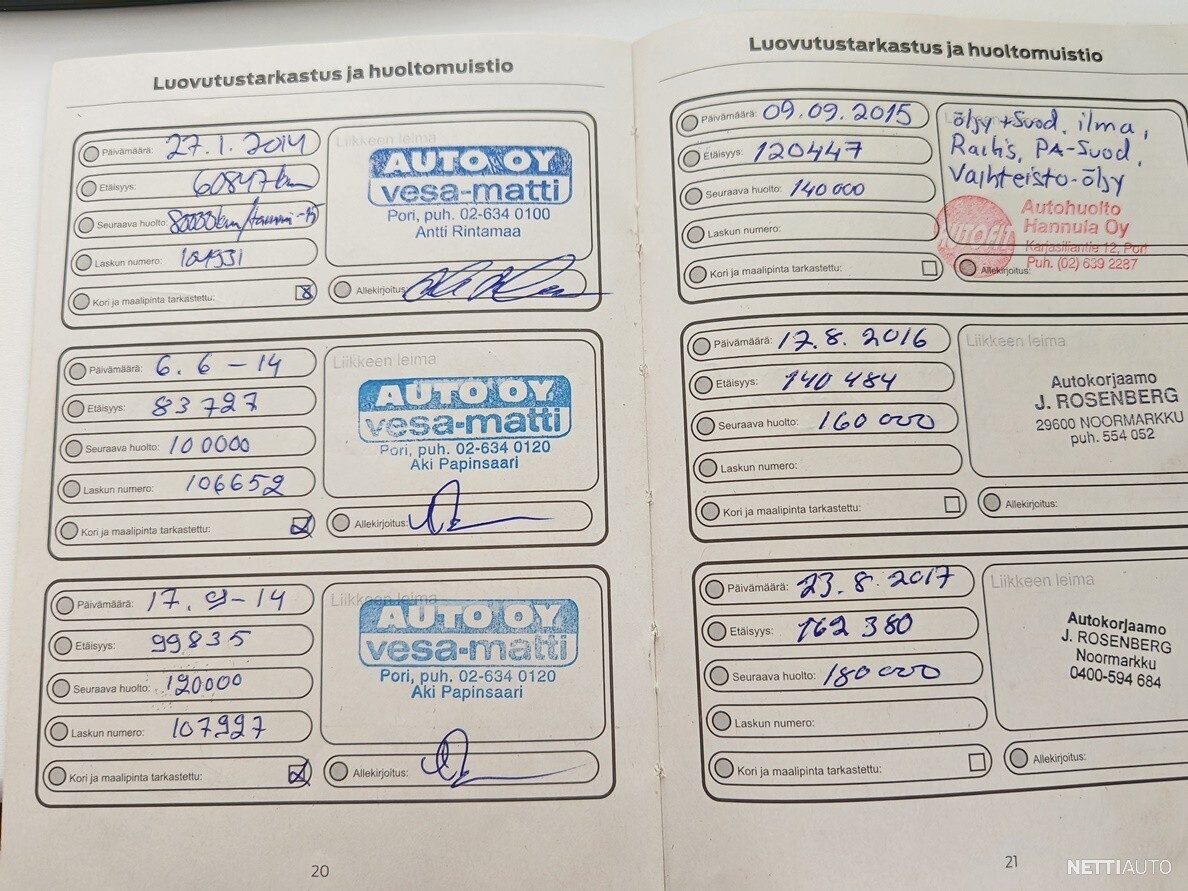 Luovutustarkastus ja huoltomuistio
Päivämäärä: 27.1.2014
Etäisyys: 60847km
Seuraava huolto: 80000km/tammi-15
Laskun numero:
Kori ja maalipinta tarkastettu:
Liikkeen leima
AUTO OY
vesa-matti
Pori, puh. 02-634 0100
Antti Rintamaa
Allekirjoitus:
Päivämäärä: 6.6-14
Etäisyys: 83727
Seuraava huolto: 100000
Laskun numero: 106652
Kori ja maalipinta tarkastettu:
Liikkeen leima
AUTO OY
vesa-matti
Pori, puh. 02-634 0120
Aki Papinsaari
Allekirjoitus:
Päivämäärä: 17.9-14
Etäisyys: 99835
Seuraava huolto: 120000
Laskun numero: 107997
Kori ja maalipinta tarkastettu:
Liikkeen leima
AUTO OY
vesa-matti
Pori, puh. 02-634 0120
Aki Papinsaari
Allekirjoitus:
20
Luovutustarkastus ja huoltomuistio
Päivämäärä: 09.09.2015
Etäisyys: 120447
Seuraava huolto: 140000
Laskun numero:
Kori ja maalipinta tarkastettu:
öljy+Suod, ilma,
Raitis, PA-Suod,
Vaihteisto-öljy
AUTOFIT
Autohuolto
Hannula Oy
Karjasillantie 12, Pori
Puh. (02) 639 2287
Allekirjoitus:
Päivämäärä: 12.8.2016
Etäisyys: 140484
Seuraava huolto: 160000
Laskun numero:
Kori ja maalipinta tarkastettu:
Liikkeen leima
Autokorjaamo
J. ROSENBERG
29600 NOORMARKKU
puh. 554 052
Allekirjoitus:
Päivämäärä: 23.8.2017
Etäisyys: 162380
Seuraava huolto: 180000
Laskun numero:
Kori ja maalipinta tarkastettu:
Liikkeen leima
Autokorjaamo
J. ROSENBERG
Noormarkku
0400-594 684
Allekirjoitus:
21
NETTIAUTO